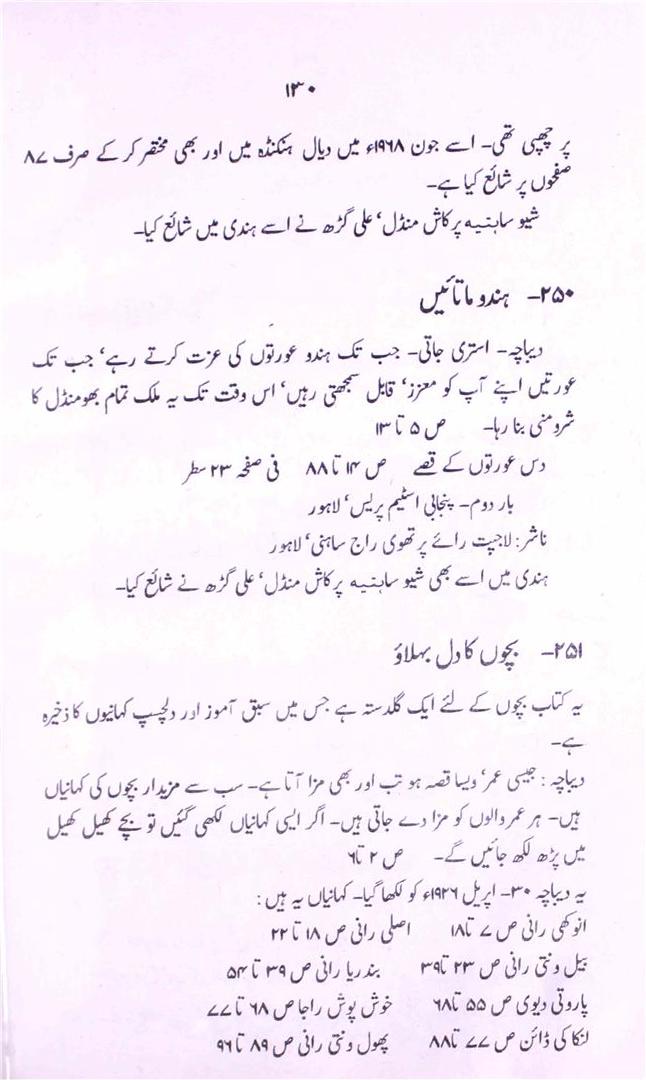 ۱۳۰
پر چھپی تھی۔ اسے جون ۱۹۶۸ء میں دیال ہنکنڈہ میں اور بھی مختصر کر کے صرف ۸۷
صفحوں پر شائع کیا ہے۔
شیو ساہنیہ پرکاش منڈل، علی گڑھ نے اسے ہندی میں شائع کیا۔
۲۵۰۔ ہندو ماتائیں
دیباچہ۔ استری جاتی۔ جب تک ہندو عورتوں کی عزت کرتے رہے، جب تک
عورتیں اپنے آپ کو معزز، قابل سمجھتی رہیں، اس وقت تک یہ ملک تمام بھومنڈل کا
شرومنی بنا رہا۔ ص ۵ تا ۱۳
دس عورتوں کے قصے ص ۱۴ تا ۸۸ فی صفحہ ۲۳ سطر
بار دوم۔ پنجابی اسٹیم پریس، لاہور
ناشر: لاجپت رائے پرتھوی راج ساہنی، لاہور
ہندی میں اسے بھی شیو ساہنیہ پرکاش منڈل، علی گڑھ نے شائع کیا۔
۲۵۱۔ بچوں کا دل بہلاؤ
یہ کتاب بچوں کے لئے ایک گلدستہ ہے جس میں سبق آموز اور دلچسپ کہانیوں کا ذخیرہ
ہے۔
دیباچہ : جیسی عمر، ویسا قصہ ہو تب اور بھی مزا آتا ہے۔ سب سے مزیدار بچوں کی کہانیاں
ہیں۔ ہر عمر والوں کو مزا دے جاتی ہیں۔ اگر ایسی کہانیاں لکھی گئیں تو بچے کھیل کھیل
میں پڑھ لکھ جائیں گے۔ ص ۲ تا ۶
یہ دیباچہ ۳۰۔ اپریل ۱۹۲۶ء کو لکھا گیا۔ کہانیاں یہ ہیں :
انوکھی رانی ص ۷ تا ۱۸ اصلی رانی ص ۱۸ تا ۲۲
بیل ونتی رانی ص ۲۳ تا ۳۹ بندریا رانی ص ۳۹ تا ۵۴
پاروتی دیوی ص ۵۵ تا ۶۸ خوش پوش راجا ص ۶۸ تا ۷۷
لنکا کی ڈائن ص ۷۷ تا ۸۸ پھول ونتی رانی ص ۸۹ تا ۹۶